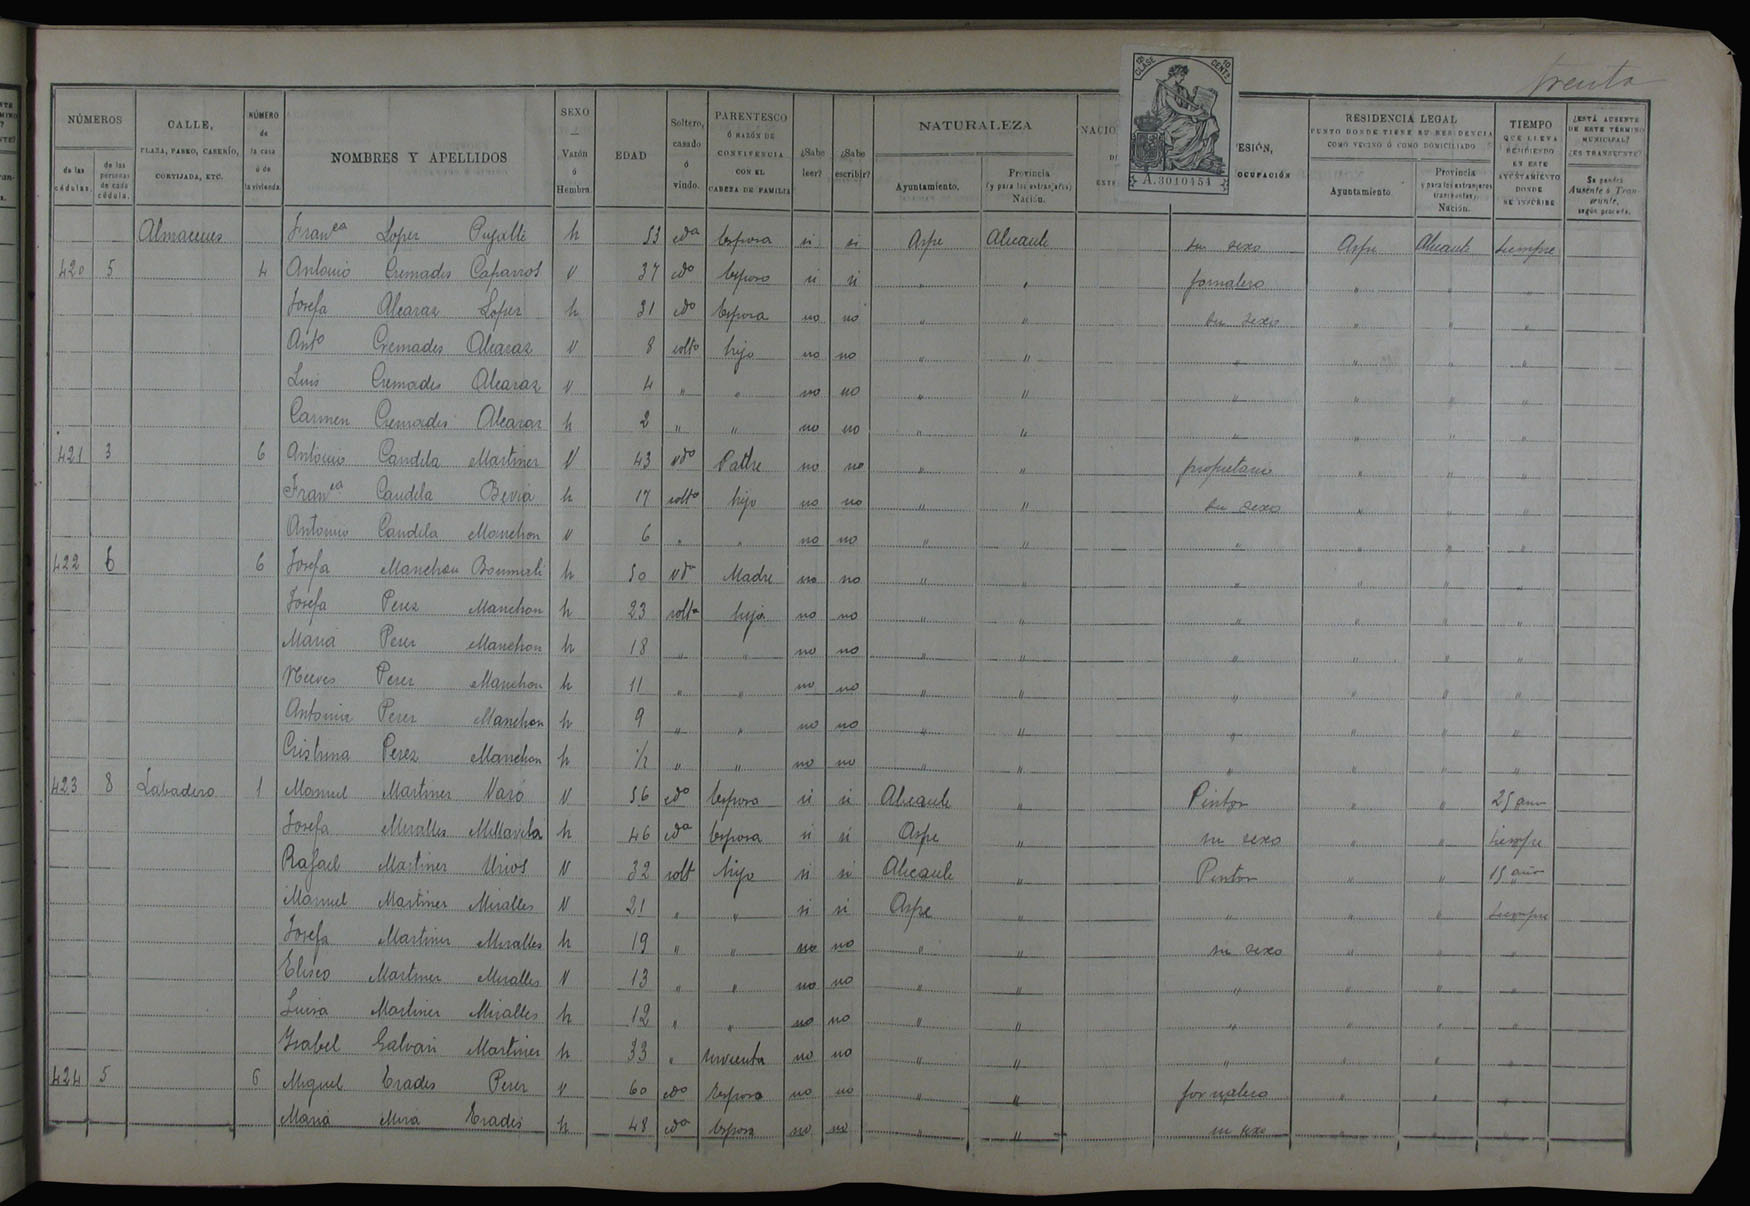 trenta
12ª CLASE 10 CENTS.
A.3010454
NÚMEROS
de las cédulas.
de las personas de cada cédula.
CALLE,
PLAZA, PASEO, CASERÍO,
CORTIJADA, ETC.
NÚMERO
de
la casa
ó de
la vivienda.
NOMBRES Y APELLIDOS
SEXO
—
Varón
ó
Hembra.
EDAD
Soltero,
casado
ó
viudo.
PARENTESCO
Ó RAZÓN DE
CONVIVENCIA
CON EL
CABEZA DE FAMILIA
¿Sabe leer?
¿Sabe escribir?
NATURALEZA
Ayuntamiento.
Provincia
(y para los extranjeros)
Nación.
NACIO
ESIÓN,
OCUPACIÓN
RESIDENCIA LEGAL
PUNTO DONDE TIENE SU RESIDENCIA
COMO VECINO Ó COMO DOMICILIADO
Ayuntamiento
Provincia
y para los extranjeros transeuntes,
Nación.
TIEMPO
QUE LLEVA
RESIDIENDO
EN ESTE
AYUNTAMIENTO
DONDE
SE INSCRIBE
¿ESTÁ AUSENTE
DE ESTE TÉRMINO
MUNICIPAL?
¿ES TRANSEUNTE?
Se pondrá
Ausente ó Transeunte,
según proceda.
Almacenes Franca Lopez Pujalte h 53 cda Esposa si si Aspe Alicante su sexo Aspe Alicante siempre
420 5 4 Antonio Cremades Caparros V 37 cdo Esposo si si " " Jornalero " " "
Josefa Alcaraz Lopez h 31 cdo Esposa no no " " su sexo " " "
Anto Cremades Alcaraz V 8 solto hijo no no " " " " " "
Luis Cremades Alcaraz V 4 " " no no " " " " " "
Carmen Cremades Alcaraz h 2 " " no no " " " " " "
421 3 6 Antonio Candela Martinez V 43 vdo Padre no no " " propietario " " "
Franca Candela Bevia h 17 solto hijo no no " " su sexo " " "
Antonio Candela Manchon V 6 " " no no " " " " " "
422 6 6 Josefa Manchon h 50 vda Madre no no " " " " " "
Josefa Perez Manchon h 23 solta hija no no " " " " " "
Maria Perez Manchon h 18 " " no no " " " " " "
Nieves Perez Manchon h 11 " " no no " " " " " "
Antonia Perez Manchon h 9 " " no no " " " " " "
Cristina Perez Manchon h " " no no " " " " " "
423 8 Labadero 1 Manuel Martinez Varó V 56 cdo Esposo si si Alicante " Pintor " " 25 años
Josefa Miralles h 46 cda Esposa si si Aspe su sexo " " siempre
Rafael Martinez Urios V 32 solt hijo si si Alicante " Pintor " " 15 años
Manuel Martinez Miralles V 21 " " si si Aspe " " " " siempre
Josefa Martinez Miralles h 19 " " no no " " su sexo " " "
Eliseo Martinez Miralles V 13 " " no no " " " " " "
Luisa Martinez Miralles h 12 " " no no " " " " " "
Isabel Galvañ Martinez h 33 " sirvienta no no " " " " " "
424 5 6 Miguel Erades Perez V 60 cdo Esposo no no " " jornalero " " "
Maria Mira Erades h 48 cda Esposa no no " " su sexo " " "